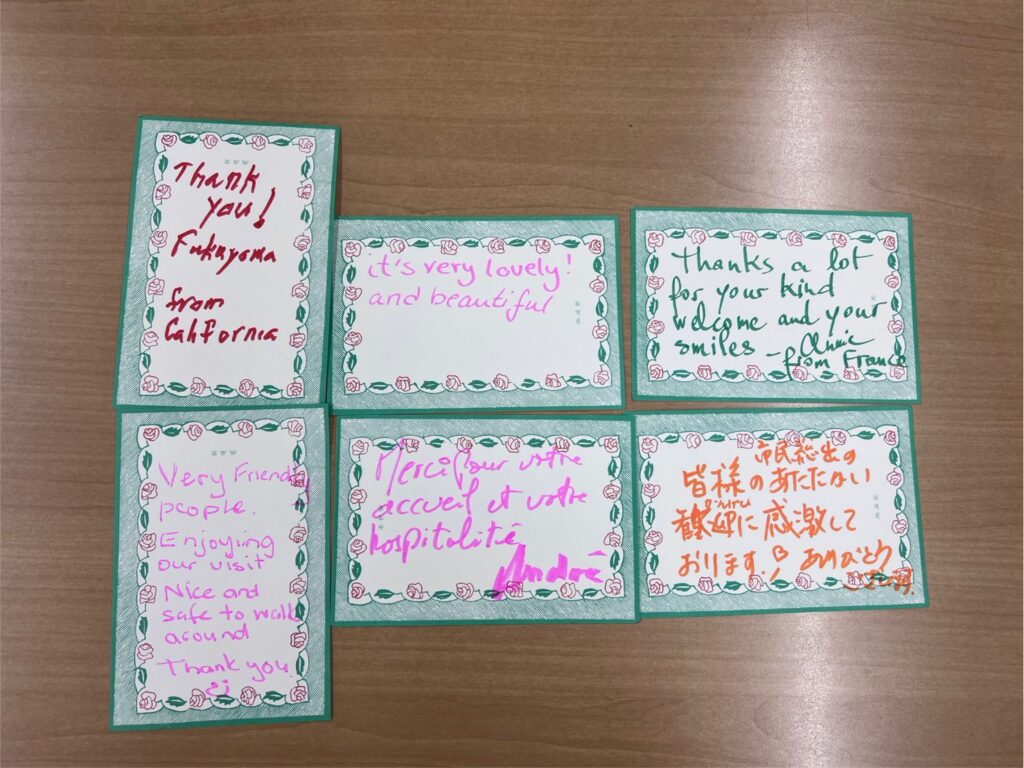 Thank
you!
Fukuyama
from
California
it's very lovely!
and beautiful
Thanks a lot
for your kind
welcome and your
smiles - Annie
from France
Very Friendly
people.
Enjoying
our visit
Nice and
safe to walk
around
Thank you
Merci pour votre
accueil et votre
hospitalité
André
市民総出の
皆様のあたたかい
に感激して
おります! ありがとう
ございます.